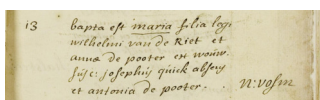 13 bapta est maria filia legi
wilhelmi van de Riet et
annæ de pooter ex wouw.
susc: josephus quick absens
et antonia de pooter. N: vosm